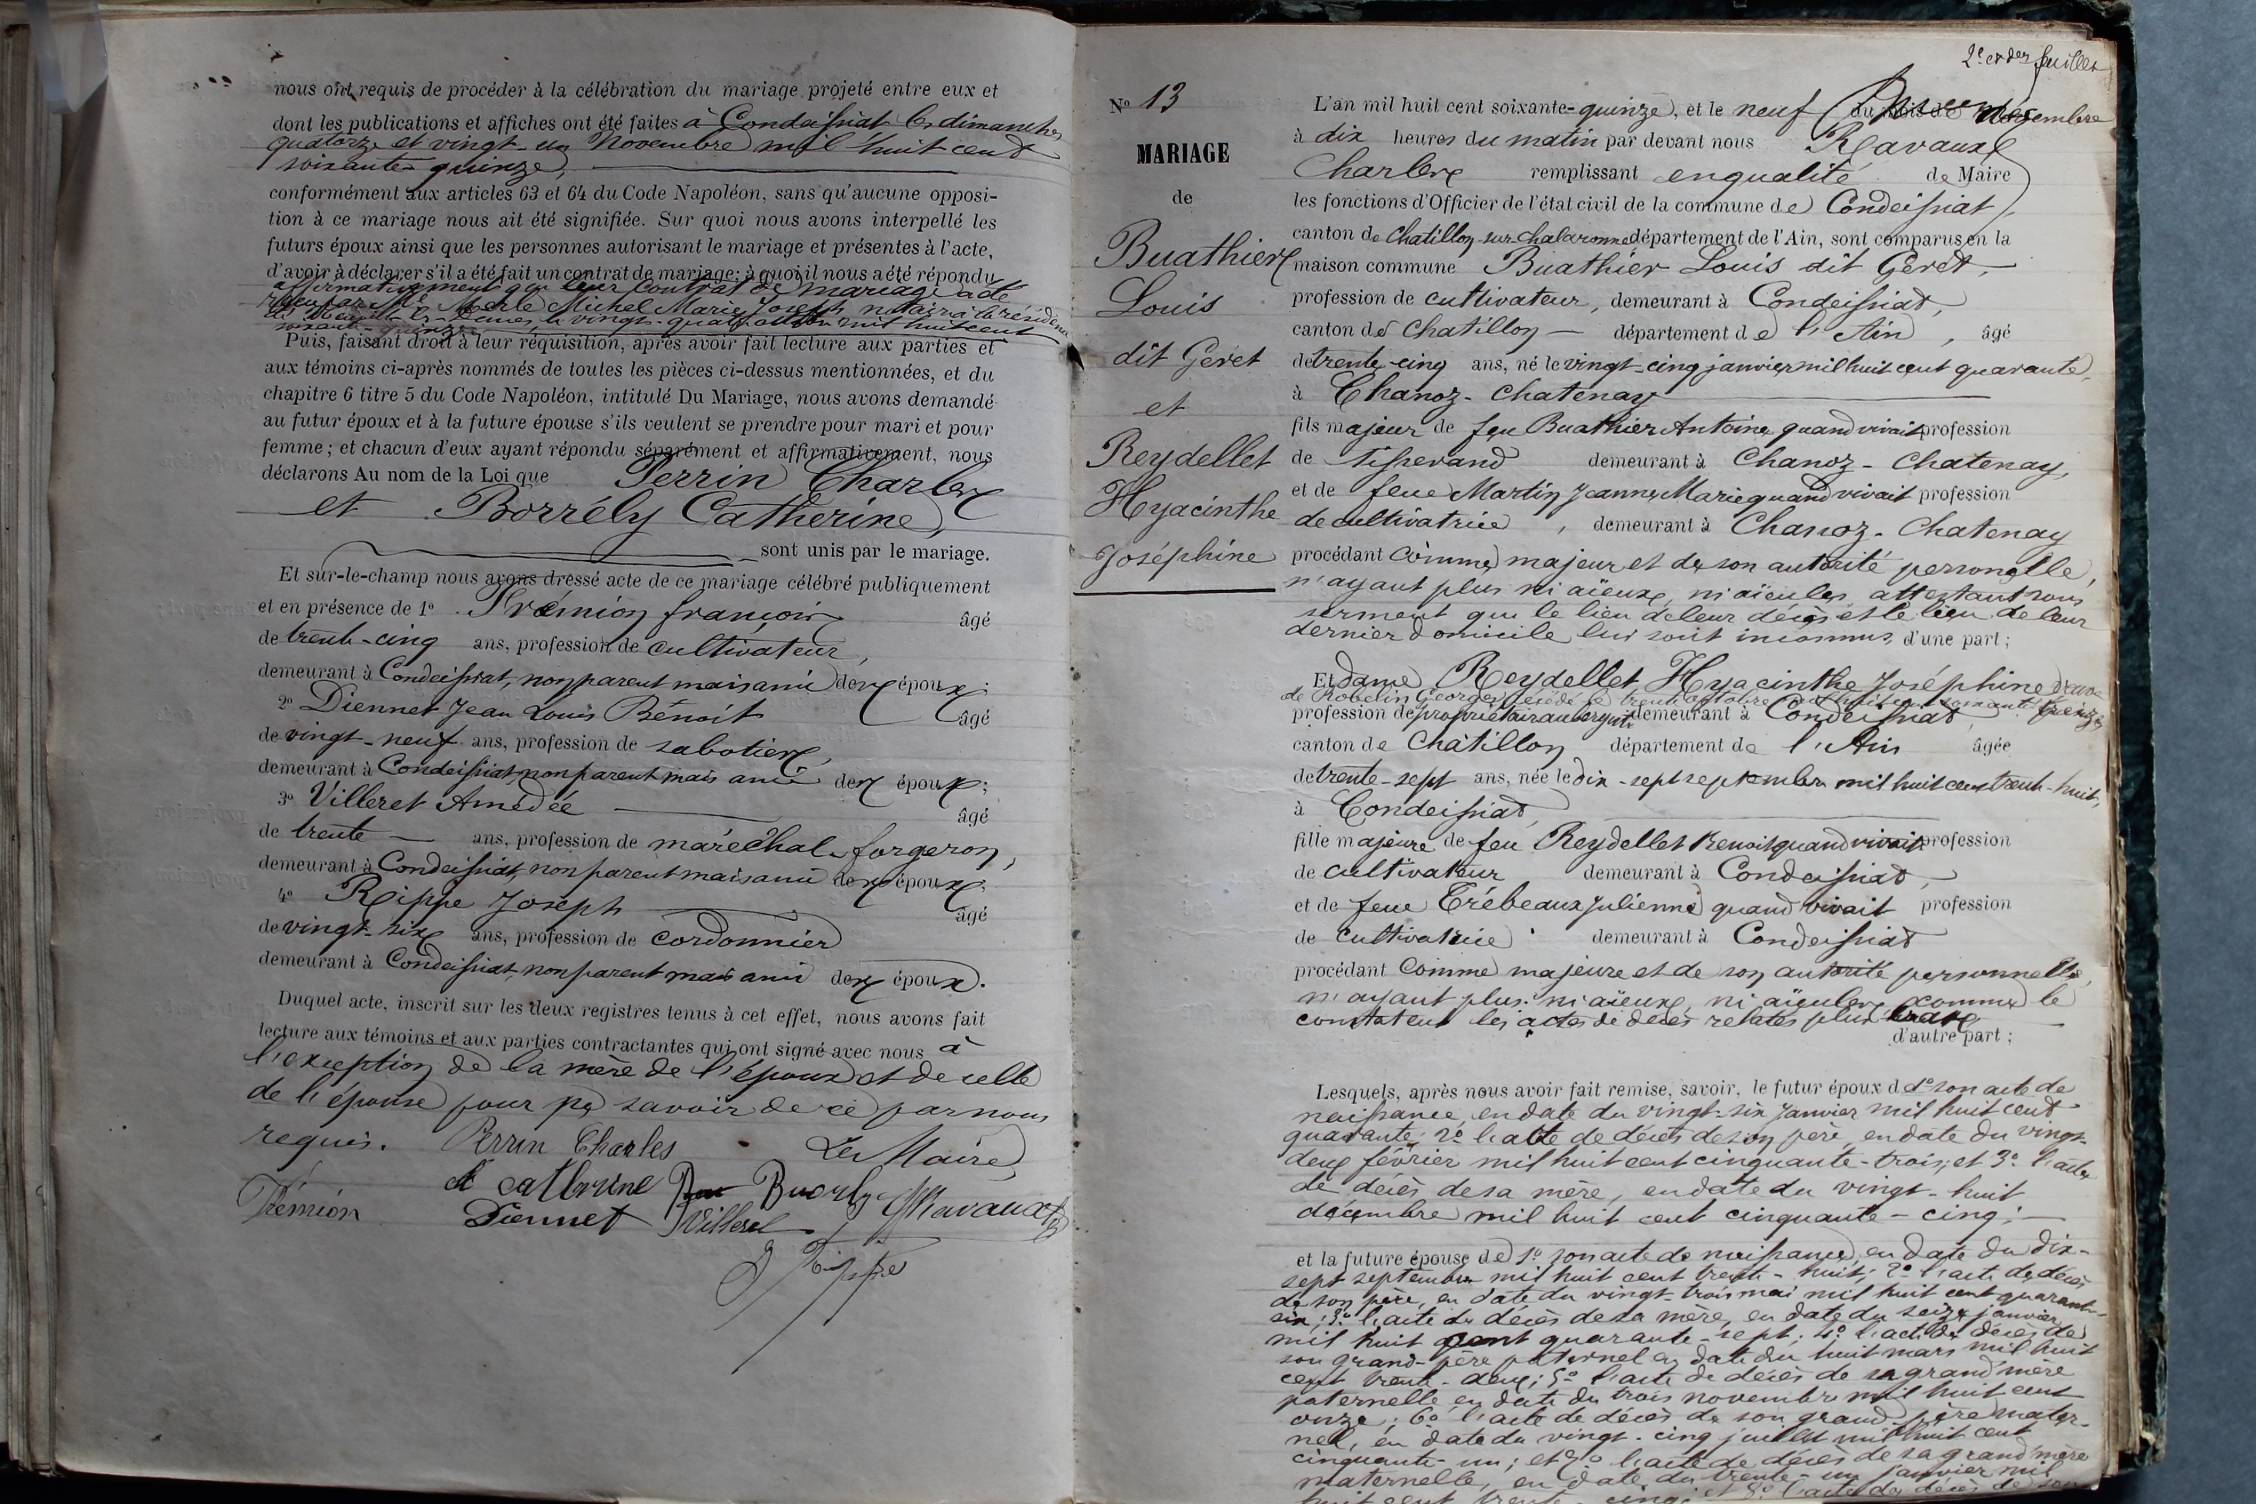 nous ont requis de procéder à la célébration du mariage projeté entre eux et
dont les publications et affiches ont été faites à Condeissiat les dimanches
quatorze et vingt-un Novembre mil huit cent
soixante-quinze,
conformément aux articles 63 et 64 du Code Napoléon, sans qu'aucune opposi-
tion à ce mariage nous ait été signifiée. Sur quoi nous avons interpellé les
futurs époux ainsi que les personnes autorisant le mariage et présentes à l'acte,
d'avoir à déclarer s'il a été fait un contrat de mariage; à quoi il nous a été répondu
affirmativement que leur contrat de mariage a été
reçu par Me Merle Michel Marie Joseph notaire à la résidence
vingt-quatre mil huit cent
soixante-quinze
Puis, faisant droit à leur réquisition, après avoir fait lecture aux parties et
aux témoins ci-après nommés de toutes les pièces ci-dessus mentionnées, et du
chapitre 6 titre 5 du Code Napoléon, intitulé Du Mariage, nous avons demandé
au futur époux et à la future épouse s'ils veulent se prendre pour mari et pour
femme; et chacun d'eux ayant répondu séparément et affirmativement, nous
déclarons Au nom de la Loi que Perrin Charles
et Borrély Catherine,
sont unis par le mariage.
Et sur-le-champ nous avons dressé acte de ce mariage célébré publiquement
et en présence de 1º Trémion françois âgé
de trente-cinq ans, profession de cultivateur,
demeurant à Condeissiat, non parent mais ami des époux;
2º Diennet Jean Louis Bénoit âgé
de vingt-neuf ans, profession de sabotier,
demeurant à Condeissiat, non parent mais ami des époux;
3º Villeret Amédée âgé
de trente ans, profession de maréchal-forgeron,
demeurant à Condeissiat, non parent mais ami des époux;
4º Rippe Joseph âgé
de vingt-six ans, profession de cordonnier
demeurant à Condeissiat, non parent mais ami des époux.
Duquel acte, inscrit sur les deux registres tenus à cet effet, nous avons fait
lecture aux témoins et aux parties contractantes qui ont signé avec nous à
l'exception de la mère de l'époux et de celle
de l'épouse pour ne savoir de ce par nous
requis. Perrin Charles Le Maire,
catbrine Ravaux
Trémion Diennet Villeret
J Rippe
2e et der feuillet
Nº 13
MARIAGE
de
Buathier
Louis
dit Geret
et
Reydellet
Hyacinthe
Joséphine
L'an mil huit cent soixante-quinze, et le neuf du mois de
à dix heures du matin par devant nous Ravaux
Charles remplissant en qualité de Maire
les fonctions d'Officier de l'état civil de la commune de Condeissiat,
canton de Chatillon-sur-Chalaronne département de l'Ain, sont comparus en la
maison commune Buathier Louis dit Geret,
profession de cultivateur, demeurant à Condeissiat,
canton de Chatillon département de l'Ain, âgé
de trente-cinq ans, né le vingt-cinq janvier mil huit cent quarante,
à Chanoz-Chatenay
fils majeur de feu Buathier Antoine quand vivait profession
de tisserand demeurant à Chanoz-Chatenay,
et de feue Martin Jeanne Marie quand vivait profession
de cultivatrice, demeurant à Chanoz-Chatenay
procédant comme majeur et de son autorité personnelle,
n'ayant plus ni aïeux, ni aïeules, attestant sous
serment que le lieu de leur décès et le lieu de leur
dernier domicile lui sont inconnus, d'une part;
Et dame Reydellet Hyacinthe Joséphine veuve
de Robelin Georges décédé le trente octobre mil huit cent soixante-quinze
profession de propriétaire aubergiste demeurant à Condeissiat
canton de Châtillon département de l'Ain âgée
de trente-sept ans, née le dix-sept septembre mil huit cent trente-huit,
à Condeissiat,
fille majeure de feu Reydellet Benoit quand vivait profession
de cultivateur demeurant à Condeissiat,
et de feue Trébeaux Julienne quand vivait profession
de cultivatrice demeurant à Condeissiat
procédant comme majeure et de son autorité personnelle,
n'ayant plus ni aïeux, ni aïeules comme le
constatent les actes de décès relatés plus bas
d'autre part;
Lesquels, après nous avoir fait remise, savoir, le futur époux d 1º son acte de
naissance, en date du vingt-six janvier mil huit cent
quarante; 2º l'acte de décès de son père, en date du vingt-
deux février mil huit cent cinquante-trois; et 3º l'acte
de décès de sa mère, en date du vingt-huit
décembre mil huit cent cinquante-cinq;
et la future épouse de 1º son acte de naissance, en date du dix-
sept septembre mil huit cent trente-huit; 2º l'acte de décès
de son père, en date du vingt-trois mai mil huit cent quarante-
six; 3º l'acte de décès de sa mère, en date du seize janvier
mil huit cent quarante-sept; 4º l'acte de décès de
son grand-père paternel en date du huit mars mil huit
cent trente-deux; 5º l'acte de décès de sa grand'mère
paternelle en date du trois novembre mil huit cent
onze; 6º l'acte de décès de son grand-père mater-
nel, en date du vingt-cinq juillet mil huit cent
cinquante-un; et 7º l'acte de décès de sa grand'mère
maternelle, en date du trente-un janvier mil
huit cent trente-cinq; et 8º l'acte de décès de son